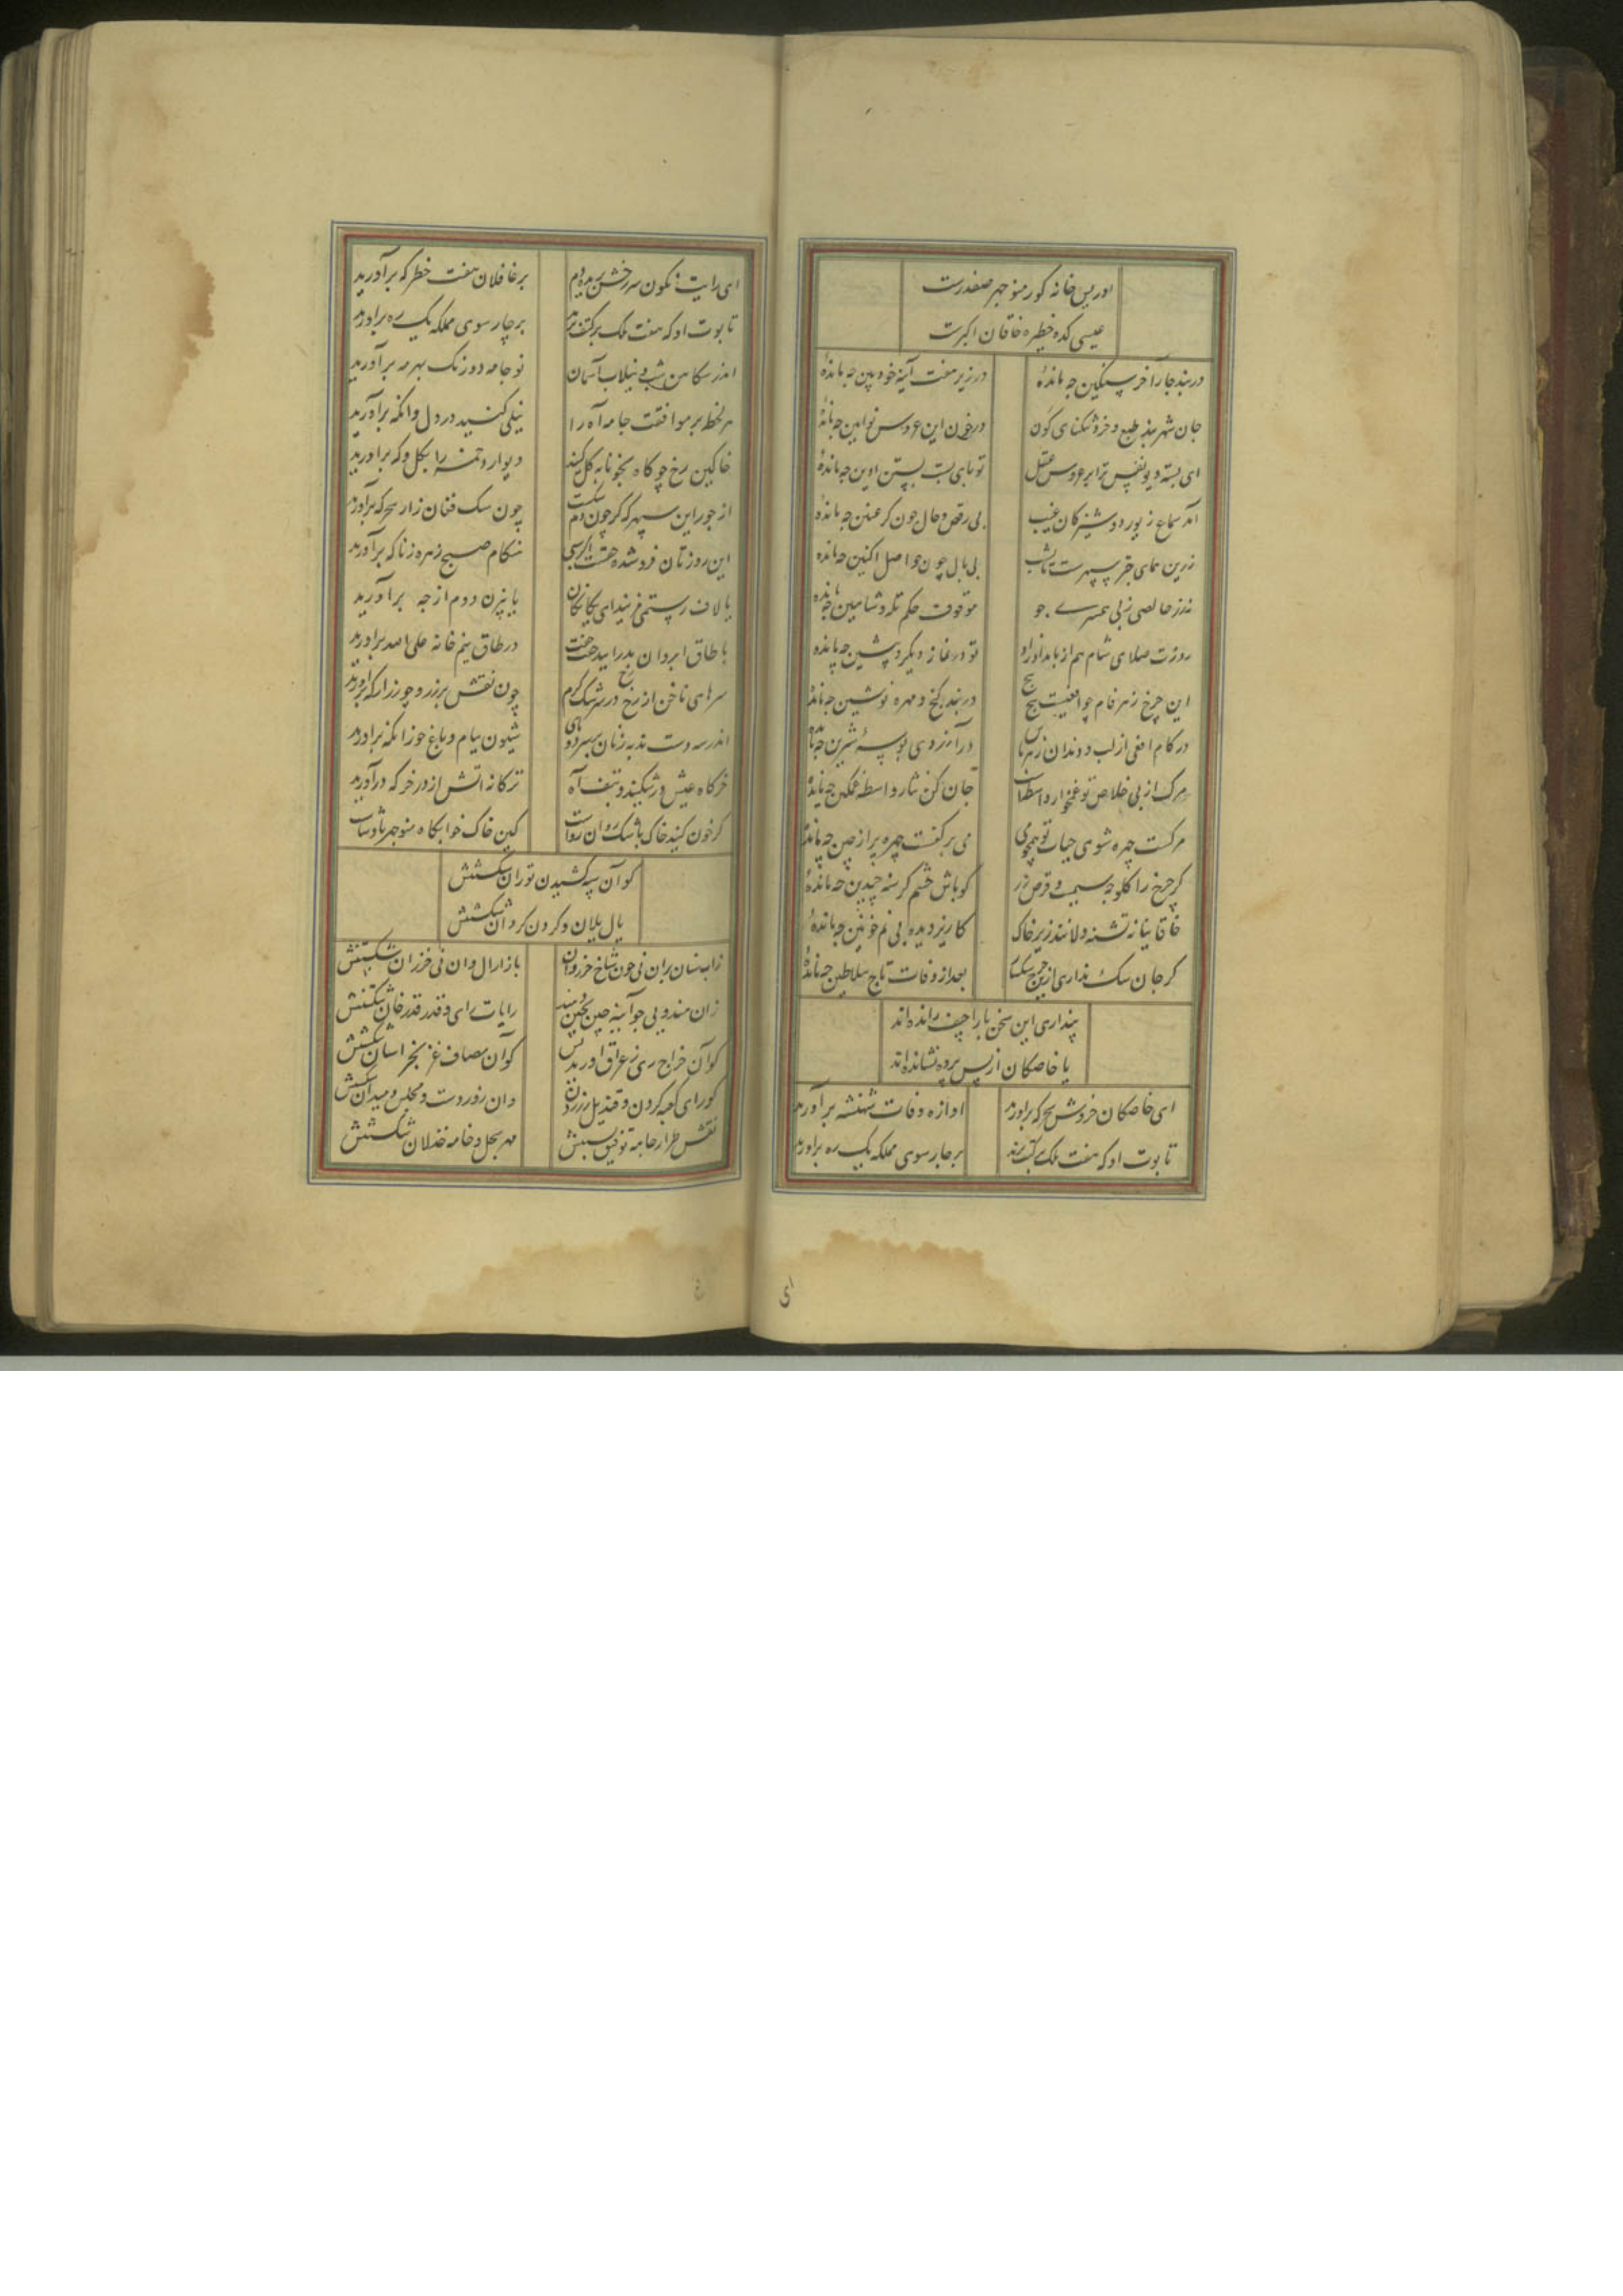 ادریس خانه کور منوچهر صفدرست
عیسی کده خطیره خاقان اکبرست
دربند چار آخر سنکین چه مانده
در زیر هفت آینه خودبین چه مانده
جان شهربند طبع و خرد تنکنای کون
در خون این عروس نوآیین چه مانده
ای بسته دیو نفس ترا بر عروس عقل
تو پای بست بستن اوین چه مانده
آمد سماع زیور دوشیزکان غیب
بی رقص و حال چون کر عنین چه مانده
زرین همای چتر سپهرست
بی بال چون حواصل اکنین چه مانده
موقوف حکم چه مانده
روزت صلای شام هم از بامداد زد
تو در نماز دیکر و پیشین چه مانده
این چرخ زهرفام چو افعیست پیچ پیچ
دربند کنج و مهره نوشین چه مانده
در کام افعی از لب و دندان زهرپاش
در آرزوی بوسه شیرین چه مانده
مرک از پی خلاص تو غمخوار واسطه‌ست
جان کن نثار واسطه غمکین چه مانده
مرکست چهره شوی حیات تو همچو می
می بر کفست چهره پر از چین چه مانده
کر چرخ را کلوجه سیمست و قرص زر
کو باش چشم کرسنه چندین چه مانده
خاقانیا نه تشنه دلانند زیر خاک
کاریز دیده بی نم خونین چه مانده
کر جان سک نداری ازین چرخ سنکسار
بعد از وفات تاج سلاطین چه مانده
پنداری این سخن باراجیف رانده‌اند
یا خاصکان از پس پرده نشانده‌اند
ای خاصکان خروش سحرکه برآورید
اوازه وفات شهنشه برآورید
تابوت او که هفت فلک برکتف برند
بر چارسوی مملکه یک ره برآورید
ای
ای رایت نکون سر رخش بریده دم
بر غافلان هفت خطرکه برآورید
تابوت او که هفت فلک برکتف برند
بر چارسوی مملکه یک ره برآورید
اندر سکاهن شب و نیلاب آسمان
نو جامه دو رنک بهر مه برآورید
هر لحظه بر موافقت جامه آه را
نیلی کنید در دل و آنکه برآورید
خاکین رخ چو کاه بخونابه کل کنید
دیوار دخمه را بکل و که برآورید
از جور این سپهر که کژ چون دم سکست
چون سک فغان زار سحرکه برآورید
این روزتان فروشده حقست اکر بسی
هنکام صبح زهره ز ناکه برآورید
یا لاف رستمی مزنید ای یکانکان
یا بیژن دوم از چه برآورید
با طاق ابروان بدرآیید جفت جفت
در طاق نیم خانه علی الله برآورید
سرهای ناخن از رخ و رخ از سرشک کرم
چون نقش بر زر و چو زر از که برآورید
اندر سه دست ندبه زنان بر سر دو پای
شیون بباغ و باغ چو زانکه برآورید
خرکاه عیش درشکنید و بتف آه
ترکانه اتش از در خرکه درآورید
کر خون کنید خاک باشک روان رواست
کین خاک خوابکاه منوچهر پادشاست
کو آن سپه کشیدن توران شکستنش
یال یلان و کردن کردان شکستنش
زابستان
زان هندویی چو آینه چین بچین و هند
رایات رای و قدر قدرخان شکستنش
کو آن خراج ری ز عراق اوریدنش
کو آن مصاف غز بخراسان شکستنش
کو رای کعبه کردن و قندیل زر زدن
وان رود و دست و مجلس و میدان شکستنش
نقش طراز جامه توفیق بستنش
مهر سجل و خامه خذلان شکستنش